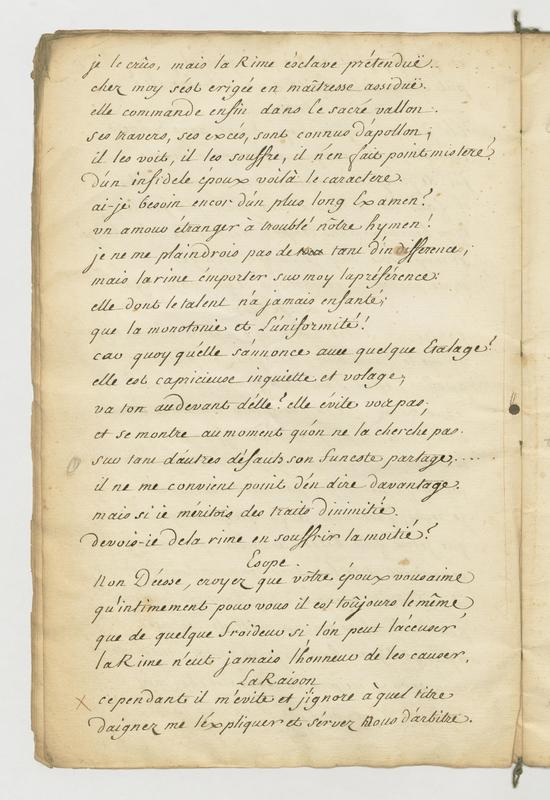 je le crûs, mais la Rime esclave prétenduë..
chez moy s'est erigée en maîtresse assiduë.
elle commande enfin dans le sacré vallon.
ses travers, ses excés, sont connus d'apollon;
il les voit, il les souffre, il n'en fait point mistere?
d'un infidele époux voilà le caractere.
ai-je besoin encor d'un plus long Examen?
un amour étranger à troublé nôtre hymen!
je ne me plaindrois pas de tant d'indifference;
mais la rime emporter sur moy la préférence:
elle dont le talent n'a jamais enfanté;
que la monotonie et L'uniformité!
car quoy qu'elle s'annonce avec quelque Etalage?
elle est capricieuse inquiette et volage;
va t'on au devant d'elle? elle évite vos pas;
et se montre au moment qu'on ne la cherche pas.
sur tant d'autres défauts son funeste partage;....
il ne me convient point d'en dire davantage.
mais si ie méritois des traits d'inimitié.
devois-ie de la rime en souffrir la moitié?
Esope.
Non Déesse, croyez que vôtre époux vous aime
qu'intimement pour vous il est toûjours le même
que de quelque froideur si l'on peut l'accuser
la Rime n'eut jamais l'honneur de les causer.
La Raison
x cependant il m'évite et j'ignore à quel titre
daignez me l'expliquer et servez Nous d'arbitre.